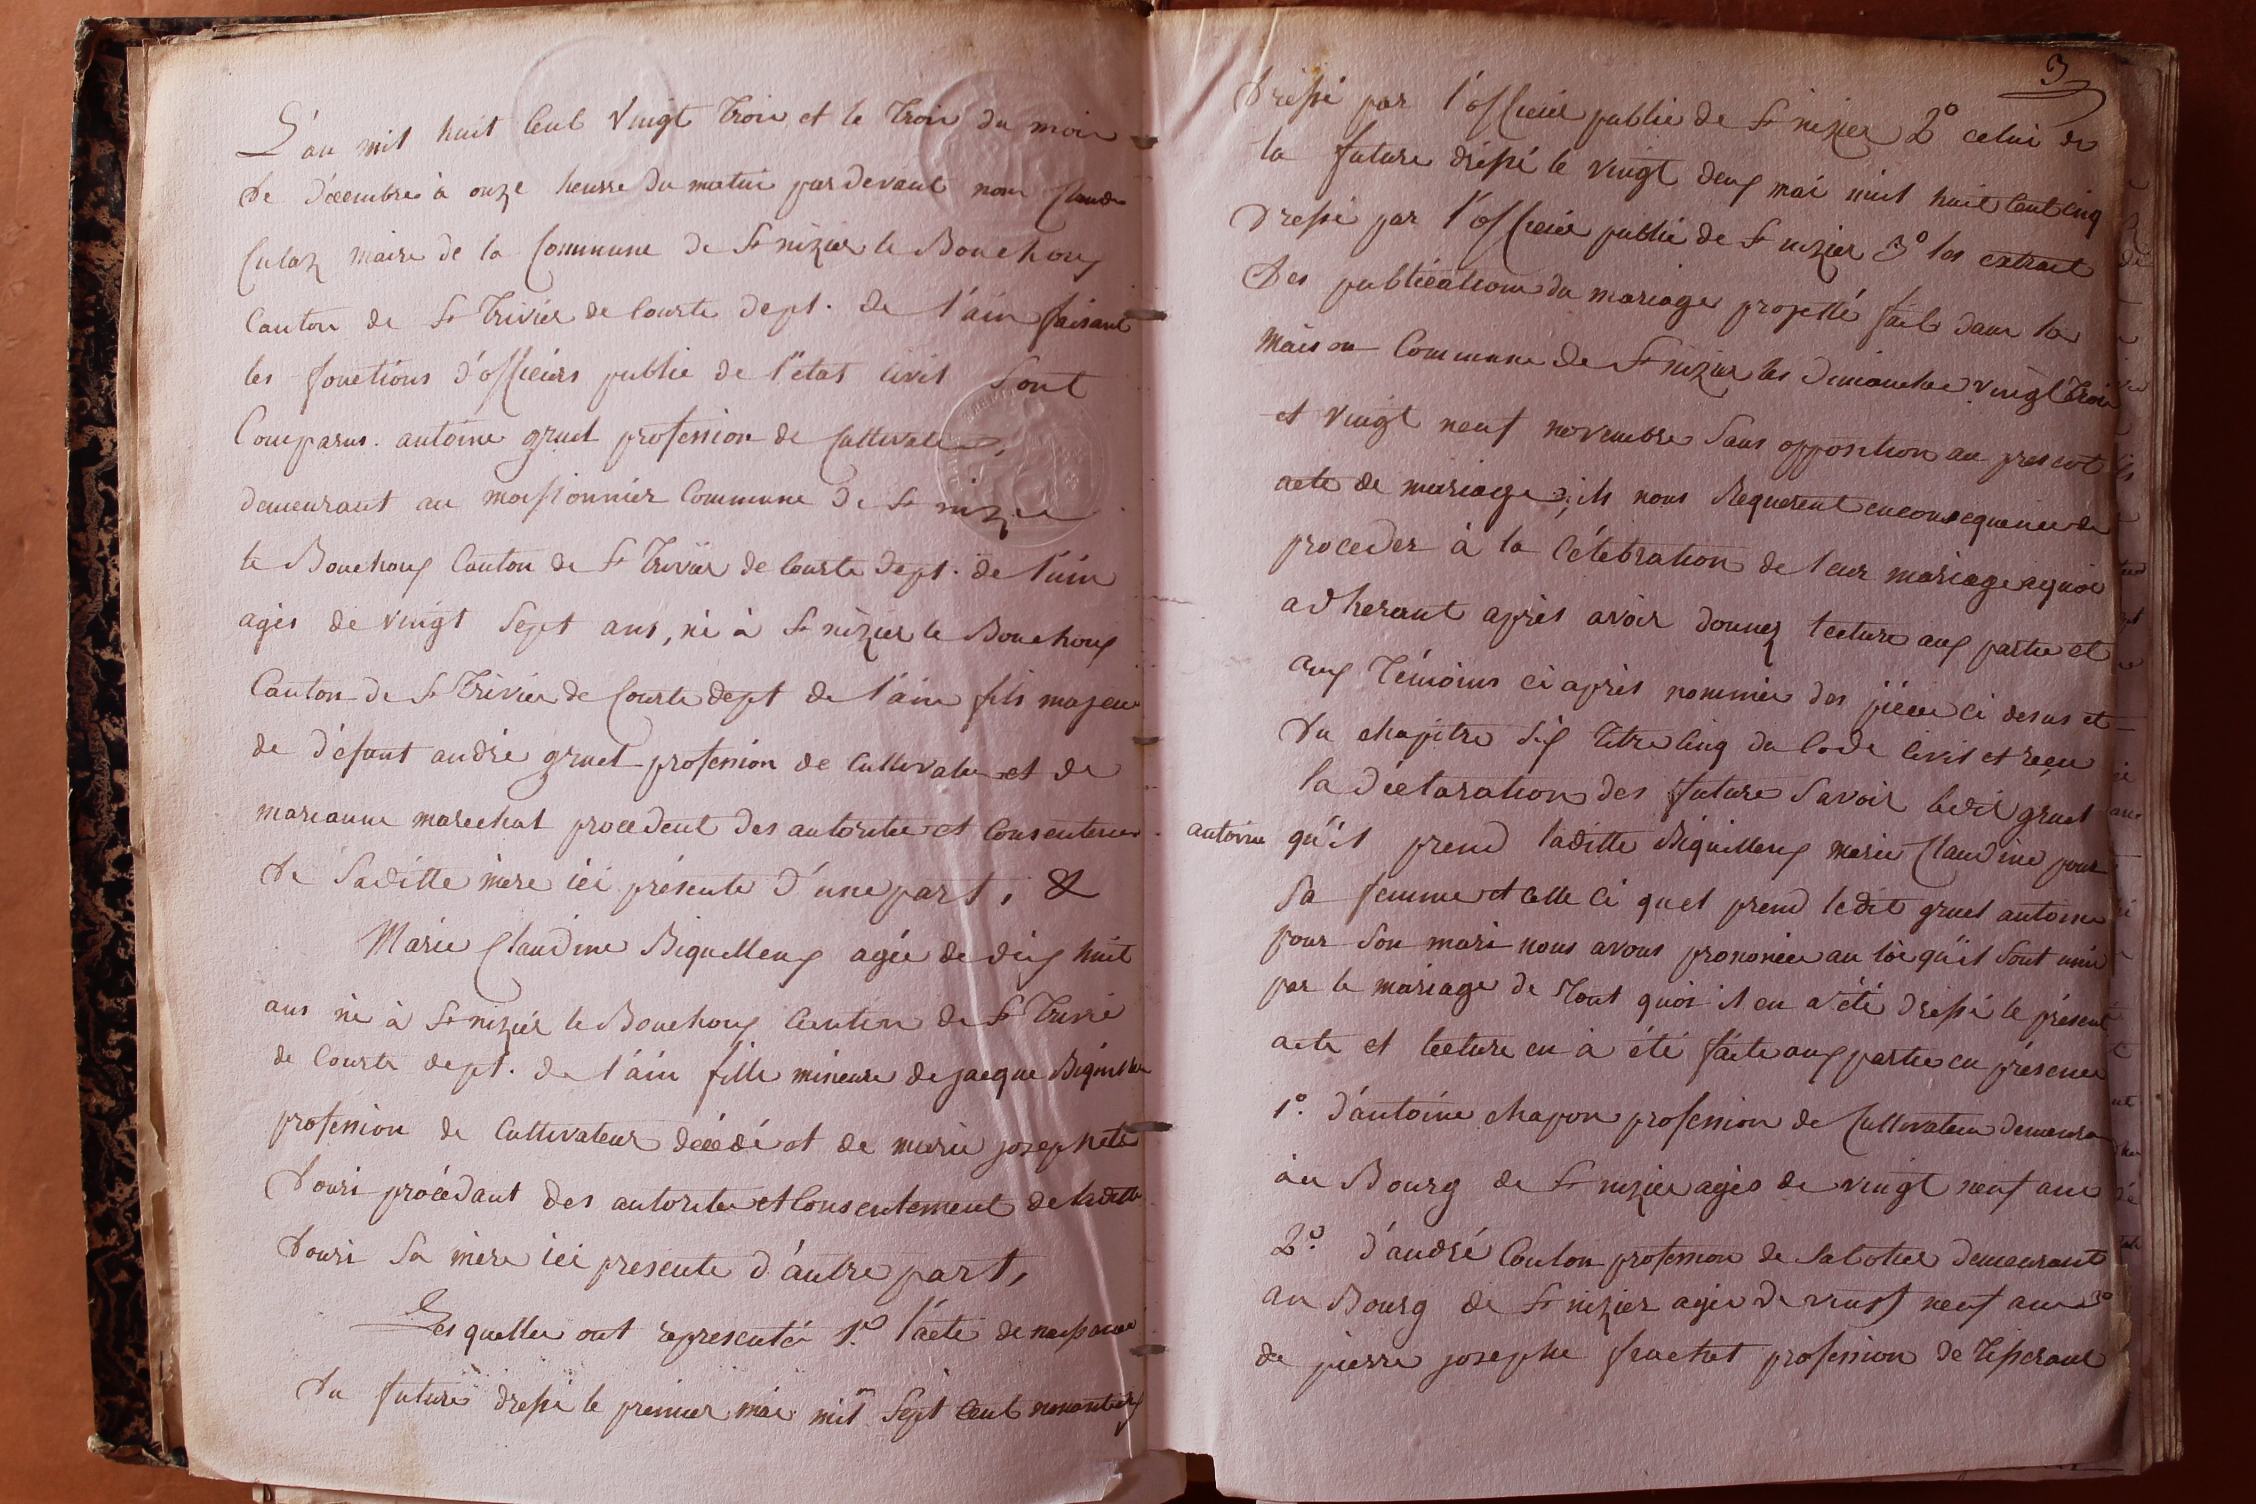 L'an mil huit Cent Vingt Trois et le Trois du mois
de décembre à onze heurre du matin par devant nous Claude
Culaz maire de la Commune de St nizier le Bouchoux
Canton de St Trivier de Courte dept. de l'ain faisant
les fonctions d'officiers public de l'état civil Sont
Comparus. antoine gruel profession de Cultivateur,
demeurant au moissonnier Commune De St nizier
le Bouchoux Canton de St Trivier de Courte Dept. de l'ain
agés de vingt Sept ans, né à St nizier le Bouchoux
Canton de St Trivier de Courte dept de l'ain fils majeur
de défunt andré gruel profession de Cultivateur et de
marianne marechal procedent des autorites et Consentemen
de Saditte mère ici présente d'une part, &
Marie Claudine Biguelleux agée de dix huit
ans né à St nizier le Bouchoux Canton de St Trivié
de Courte dept. de l'ain fille mineure de jacque Biguilleu
profession de Cultivateur décédé et de marie josephete
Douri procédant des autorites et Consentement de laditte
Douri Sa mère ici presente d'autre part,
Lesquelles ont representés 1.o l'acte de naissance
du future dressé le premier mai mil Sept Cent nonantesix
3
Dressé par l'officier public de St nizier 2o celui de
la future dréssé le vingt deux mai mil huit Cent cinq
Dressé par l'officier public de St nizier 3o les extrait
des publications du mariage projetté fait dans la
maison Commune de St nizier les dimanches vingt Trois
et vingt neuf novembre Sans opposition au present
acte de mariage, ils nous Requerent enconsequence de
proceder à la Célébration de leur mariage aquoi
adherant après avoir donnez lecture aux parties et
aux Témoins ci après nommées des pièces ci desus et
du chapitre Six titre Cinq du Code civil et reçu
la déclaration des future Savoir ledit gruel
antoine qu'il prend laditte Biguilleux marie Claudine pour
Sa femme et Celle Ci quel prend ledit gruel antoine
pour Son mari nous avons prononcée au loi qu'il Sont unis
par le mariage de Tout quoi il en a été dressé le présent
acte et lecture en à été faite aux parties en présence
1o. d'antoine chapon profession de Cultivateur demeurant
au Bourg de St nizier agés de vingt neuf ans
2o. d'andré Coulon profession de Sabotier demeurant
au Bourg de St nizier agée de vingt neuf ans 3o
de pierre josephe fruchet profession de Tisserand